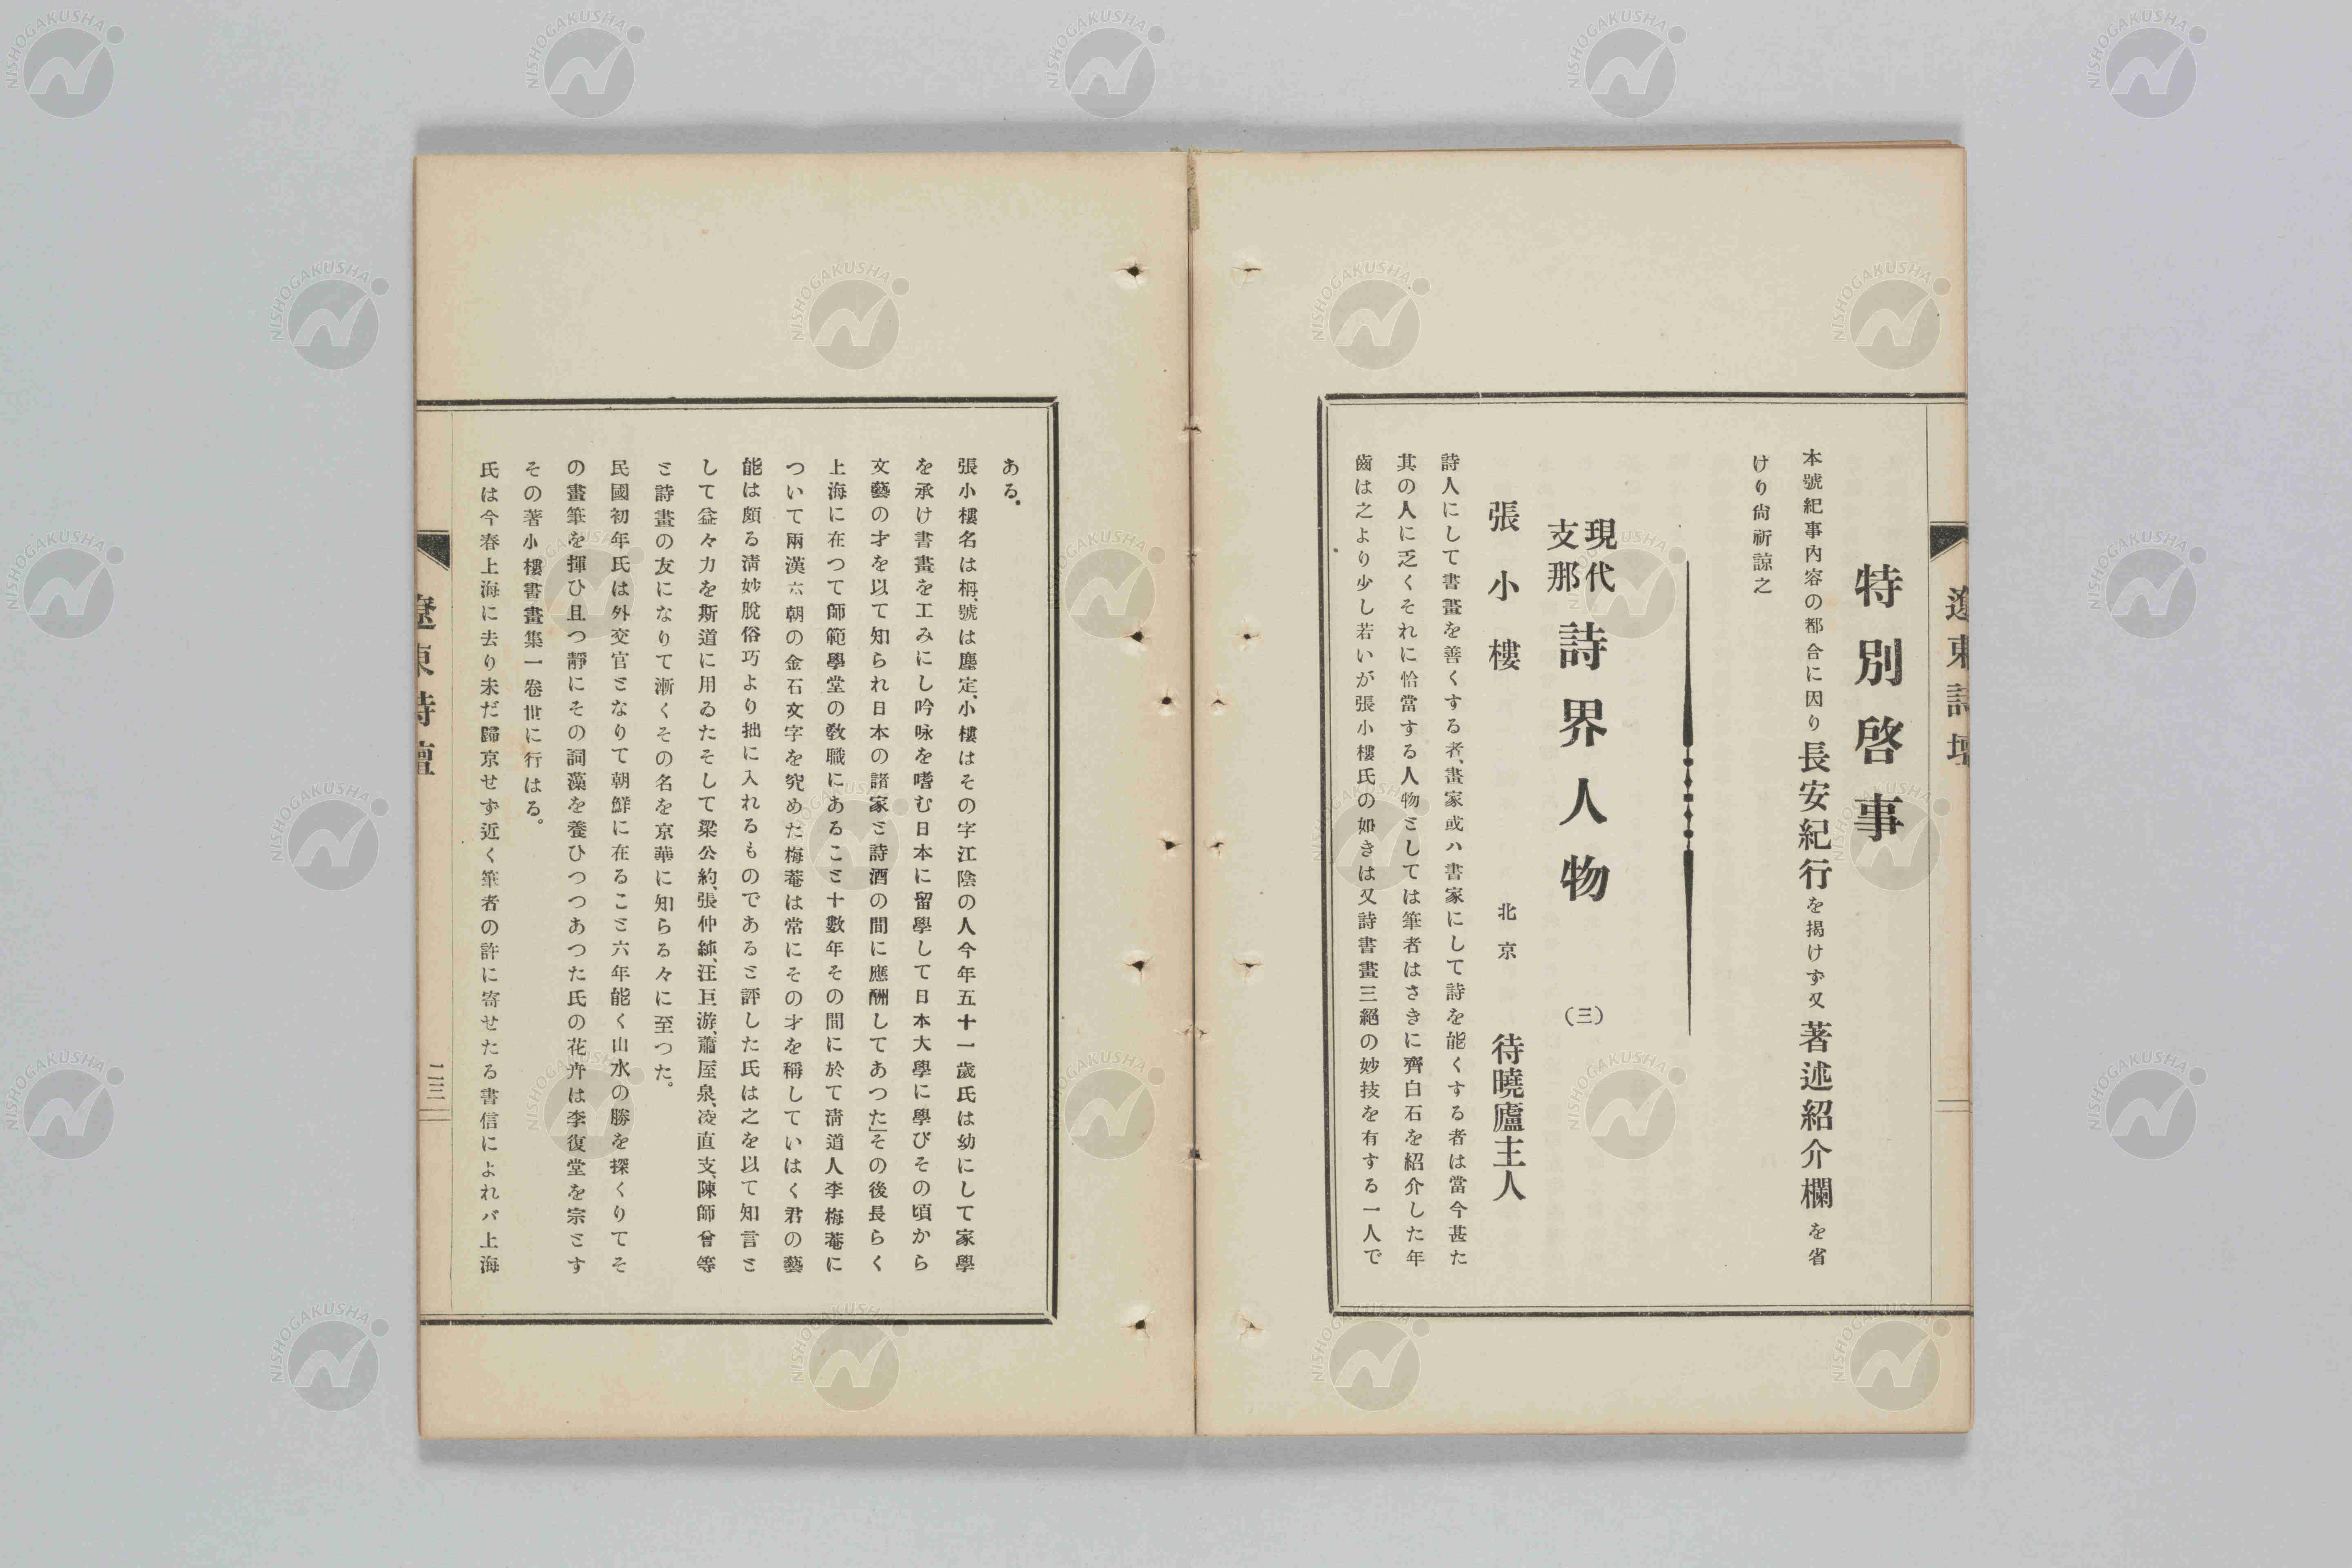 遼東詩壇
特別啓事
本號紀事内容の都合に因り長安紀行を揭けず又著述紹介欄を省
けり尙祈諒之
現代
支那
詩界人物
(三)
張小樓
北京 待曉廬主人
詩人にして書畫を善くする者、畫家或ハ書家にして詩を能くする者は當今甚た
其の人に乏くそれに恰當する人物としては筆者はさきに齊白石を紹介した年
齒は之より少し若いが張小樓氏の如きは又詩書畫三絕の妙技を有する一人で
ある。
張小樓名は枬、號は塵定、小樓はその字江陰の人今年五十一歲氏は幼にして家學
を承け書畫を工みにし吟咏を嗜む日本に留學して日本大學に學びその頃から
文藝の才を以て知られ日本の諸家と詩酒の間に應酬してあつた」その後長らく
上海に在つて師範學堂の敎職にあること十數年その間に於て淸道人李梅菴に
ついて兩漢六朝の金石文字を究めた梅菴は常にその才を稱していはく君の藝
能は頗る淸妙脫俗巧より拙に入れるものであると評した氏は之を以て知言と
して益々力を斯道に用ゐたそして梁公約、張仲純、汪巨游、蕭厔泉、凌直支、陳師曾等
と詩畫の友になりて漸くその名を京華に知らる々に至つた。
民國初年氏は外交官となりて朝鮮に在ること六年能く山水の勝を探くりてそ
の畫筆を揮ひ且つ靜にその詞藻を養ひつつあつた氏の花卉は李復堂を宗とす
その著小樓書畫集一卷世に行はる。
氏は今春上海に去り未だ歸京せず近く筆者の許に寄せたる書信によれバ上海
遼東詩壇
二三